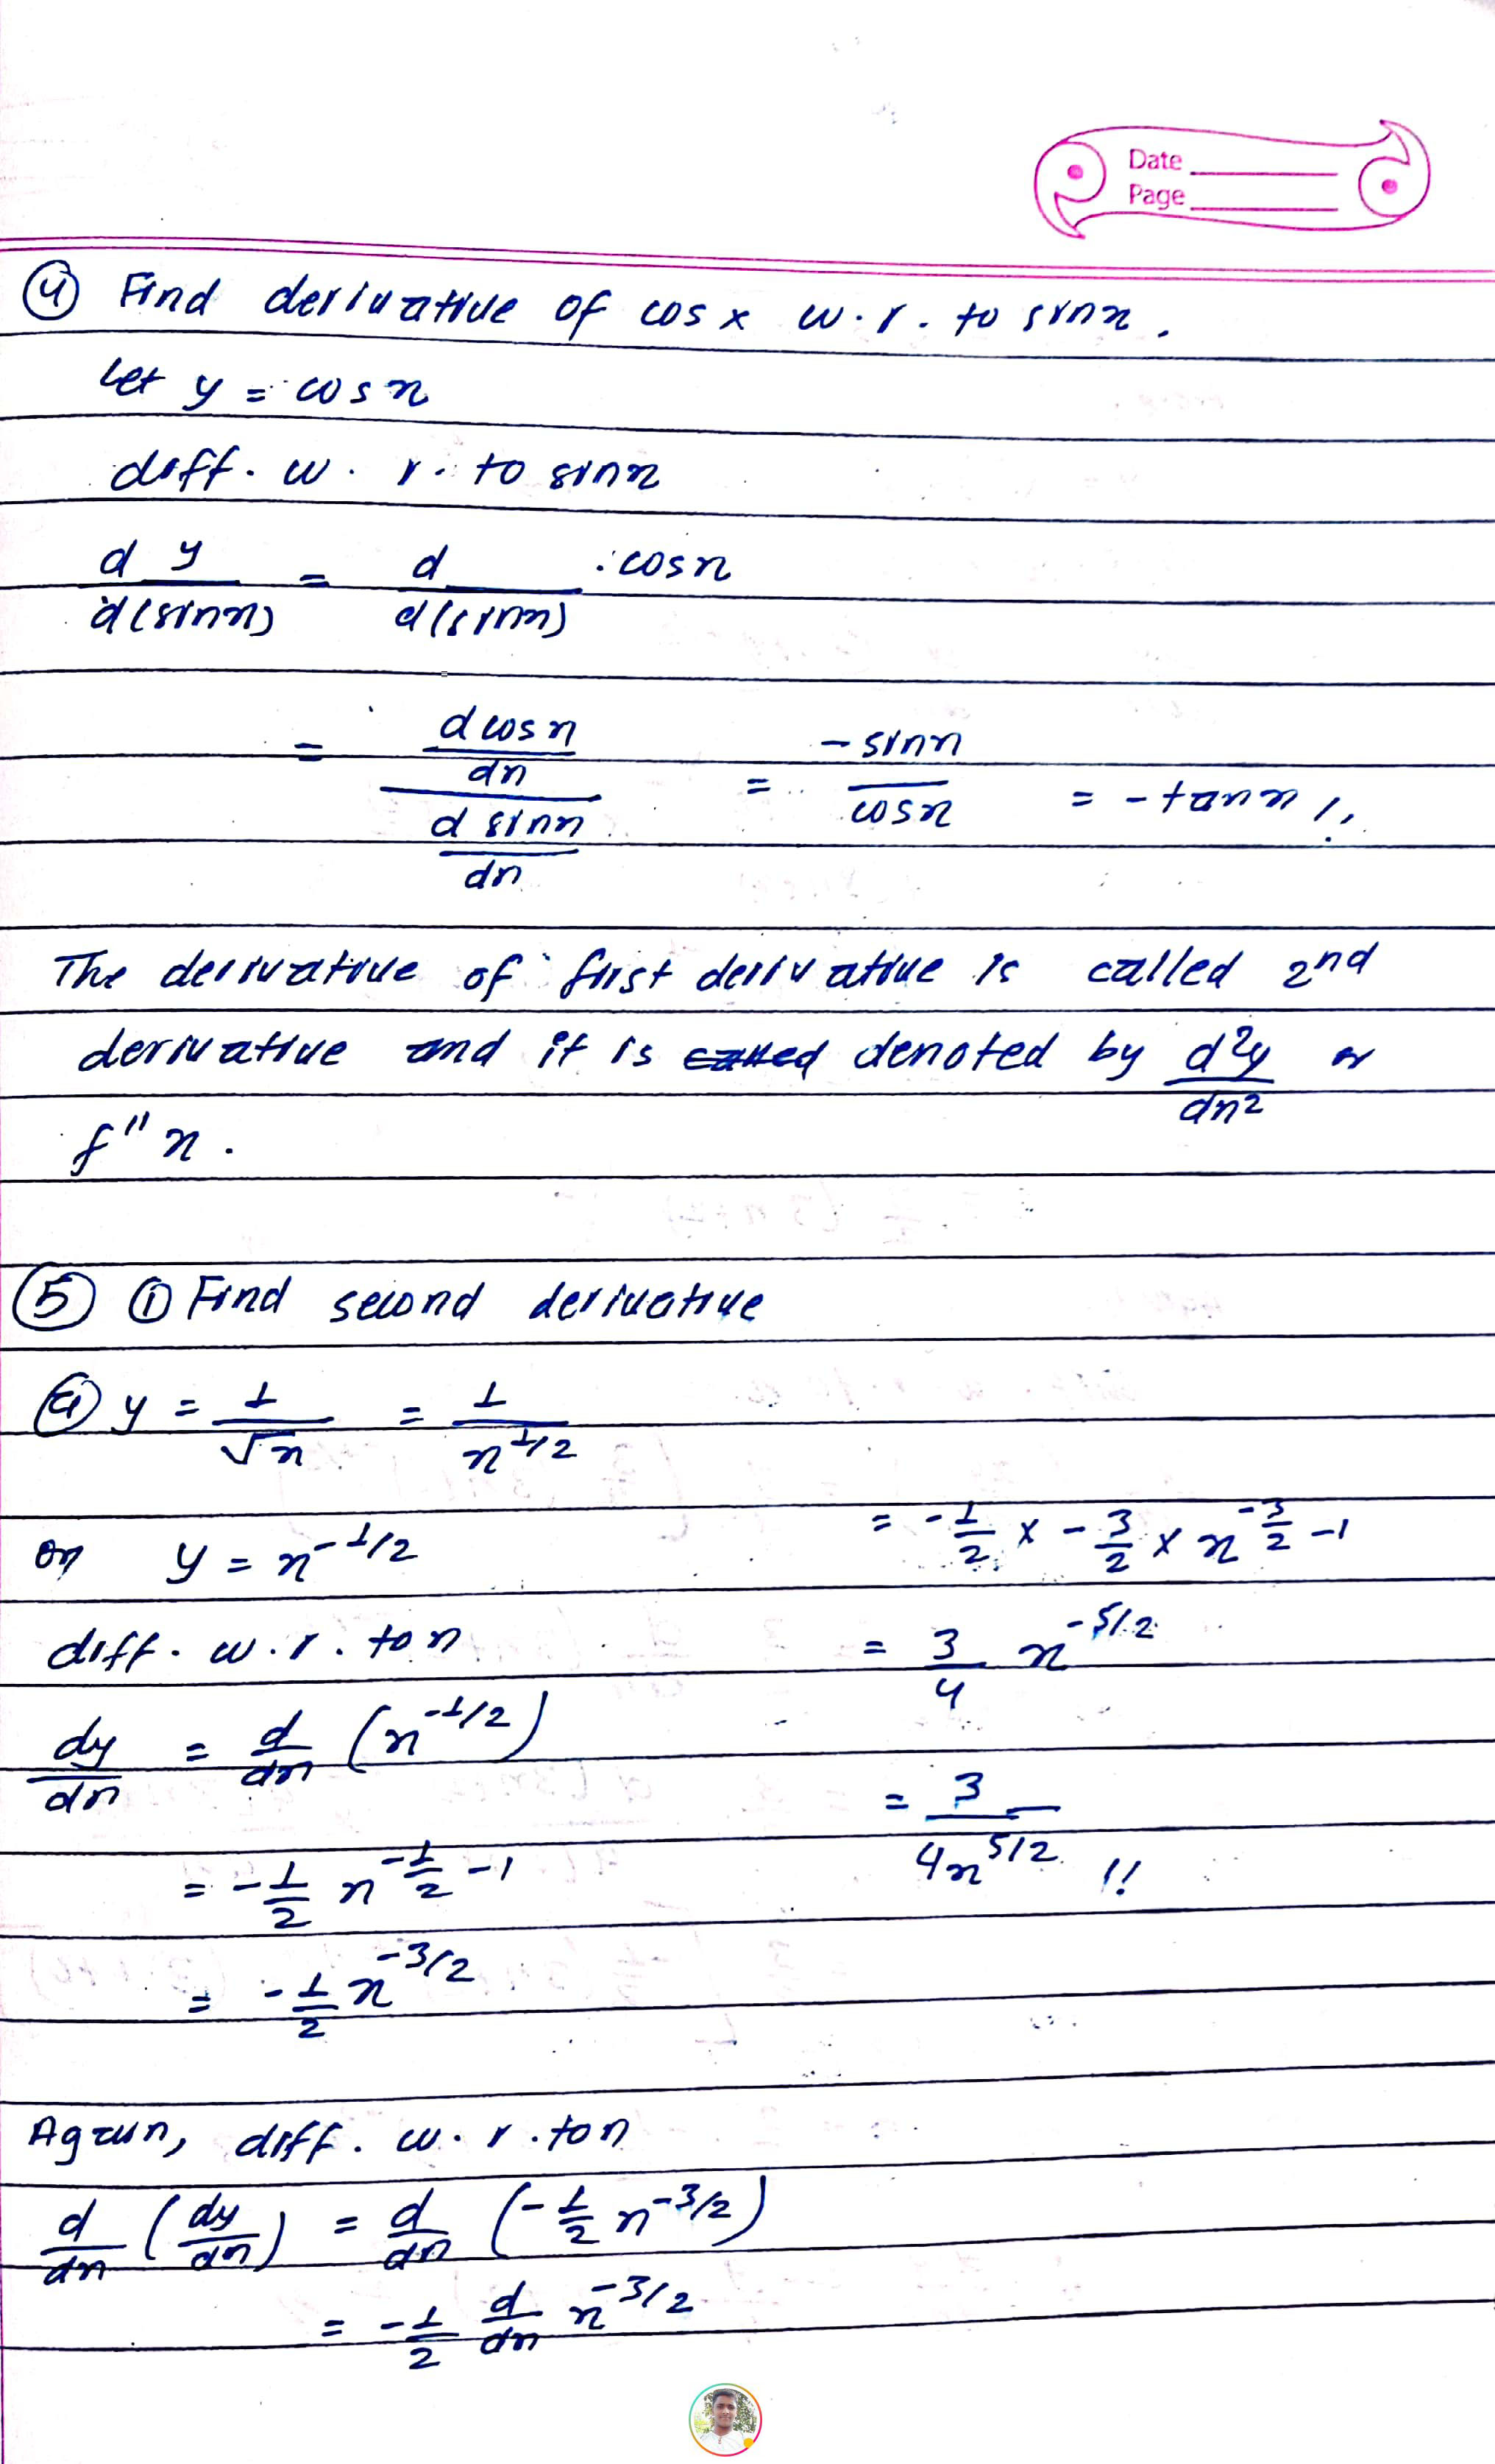 Date
Page
④ Find derivative of cos x w.r. to sinx.
Let y = cosx
diff. w.r. to sinx
dy/d(sinx) = d/d(sinx) . cosx
= (d cosx/dx)/(d sinx/dx) = -sinx/cosx = -tanx //
The derivative of first derivative is called 2nd
derivative and it is called denoted by d²y/dx² or
f''x.
⑤ ① Find second derivative
ⓐ y = 1/√x = 1/x^1/2
or y = x^-1/2
diff. w.r. to x
dy/dx = d/dx (x^-1/2)
= -1/2 x^-1/2 -1
= -1/2 x^-3/2
Again, diff. w.r. to x
d/dx (dy/dx) = d/dx (-1/2 x^-3/2)
= -1/2 d/dx x^-3/2
= -1/2 × -3/2 × x^-3/2 -1
= 3/4 x^-5/2
= 3/4x^5/2 //